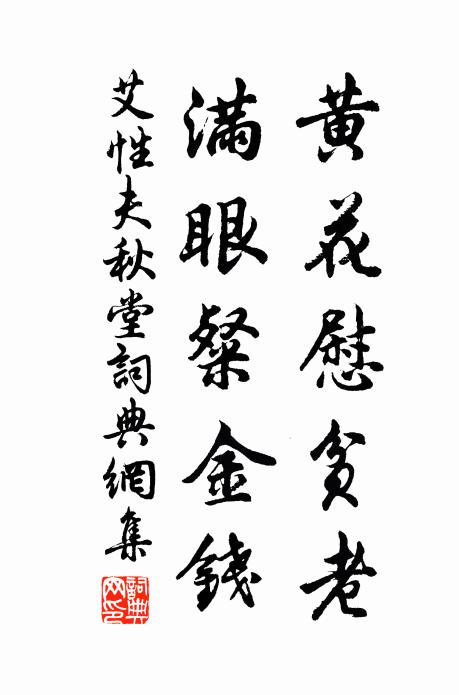 黃花慰貧老
滿眼粲金錢
艾性夫秋堂詞典網集
詞典網印